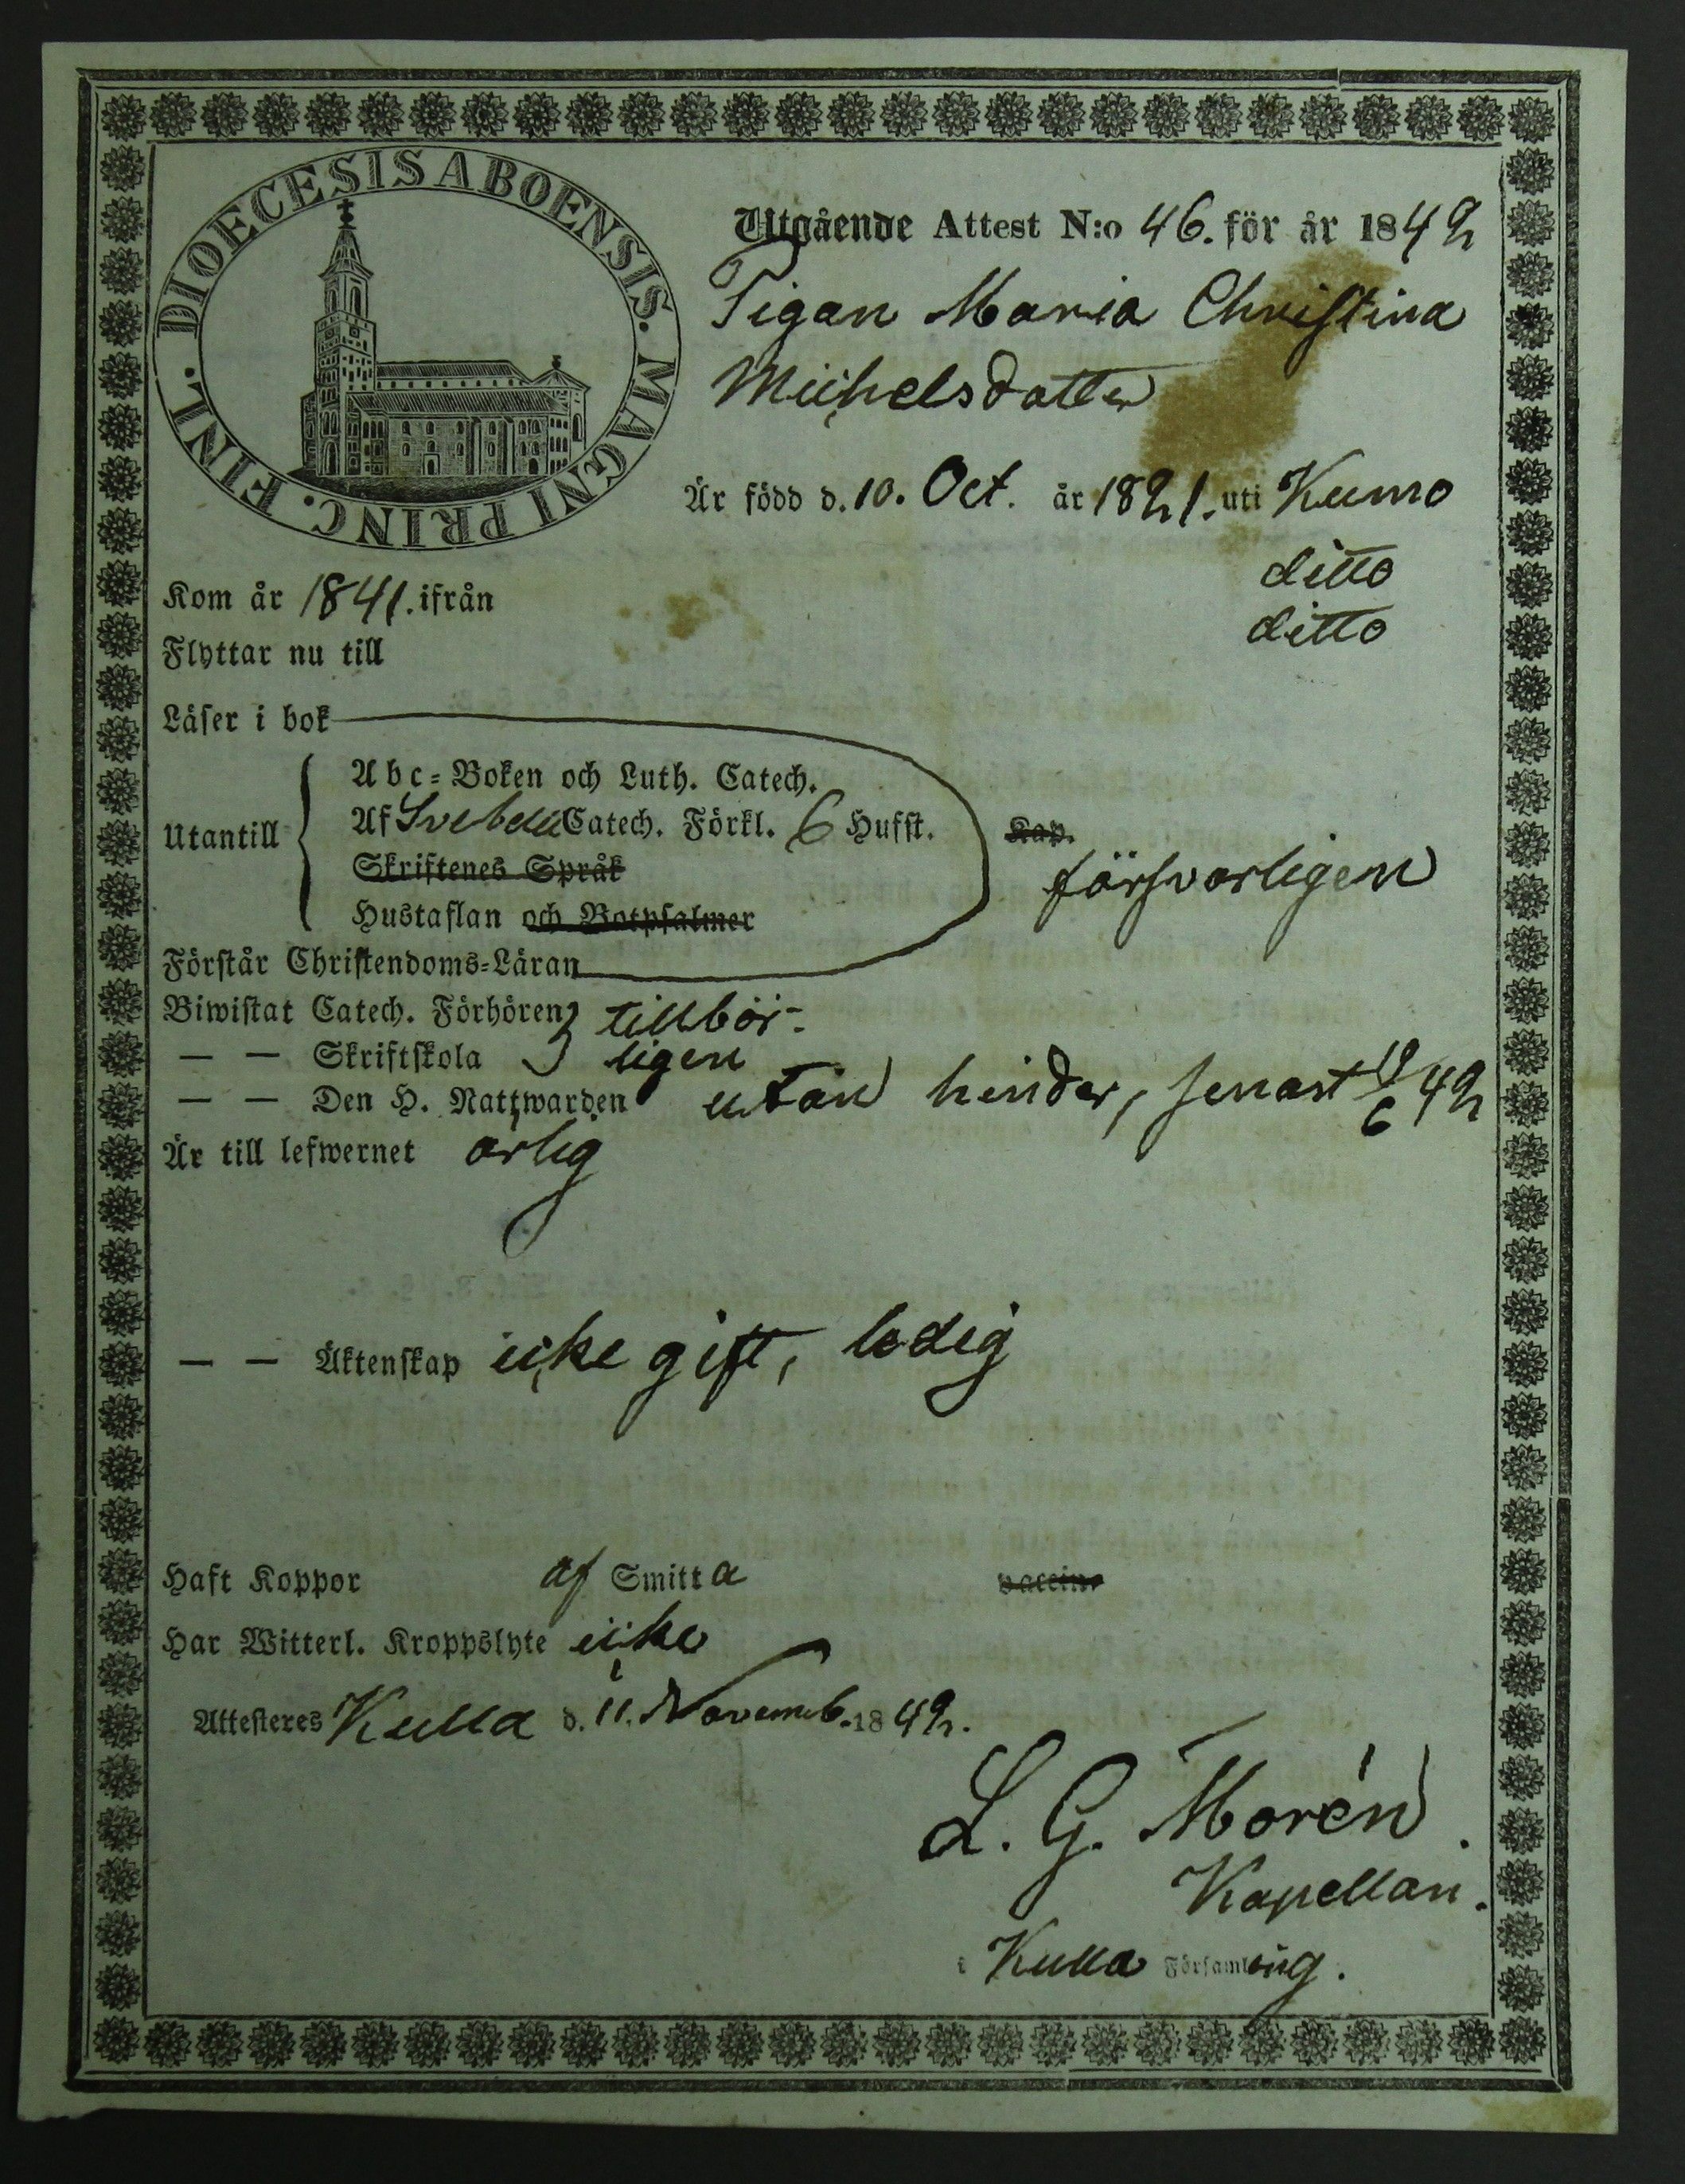 DIOECESIS ABOENSIS. MAGNI PRINC. FINL.
Utgående Attest N:o 46. för år 1842
Pigan Maria Christina
Michelsdotter
Är född d. 10. Oct. år 1821. uti Kumo
Kom år 1841. ifrån ditto
Flyttar nu till ditto
Läser i bok
Utantill
Abc-Boken och Luth. Catech.
Af Svebelii Catech. Förkl. 6 Hufst. Kap.
Skriftenes Språk
Hustaflan och Botpsalmer
försvarligen
Förstår Christendoms-Läran
Biwistat Catech. Förhören tillbör-
— — Skriftskola ligen
— — Den H. Nattwarden utan hinder, senast 19/6 42
Är till lefwernet ärlig
— — Äktenskap icke gift, ledig
Haft Koppor af Smitta vaccine
Har Witterl. Kroppslyte icke
Attesteres Kulla d. 11. Novemb. 1842.
L. G. Morén.
Kapellan.
i Kulla Församling.